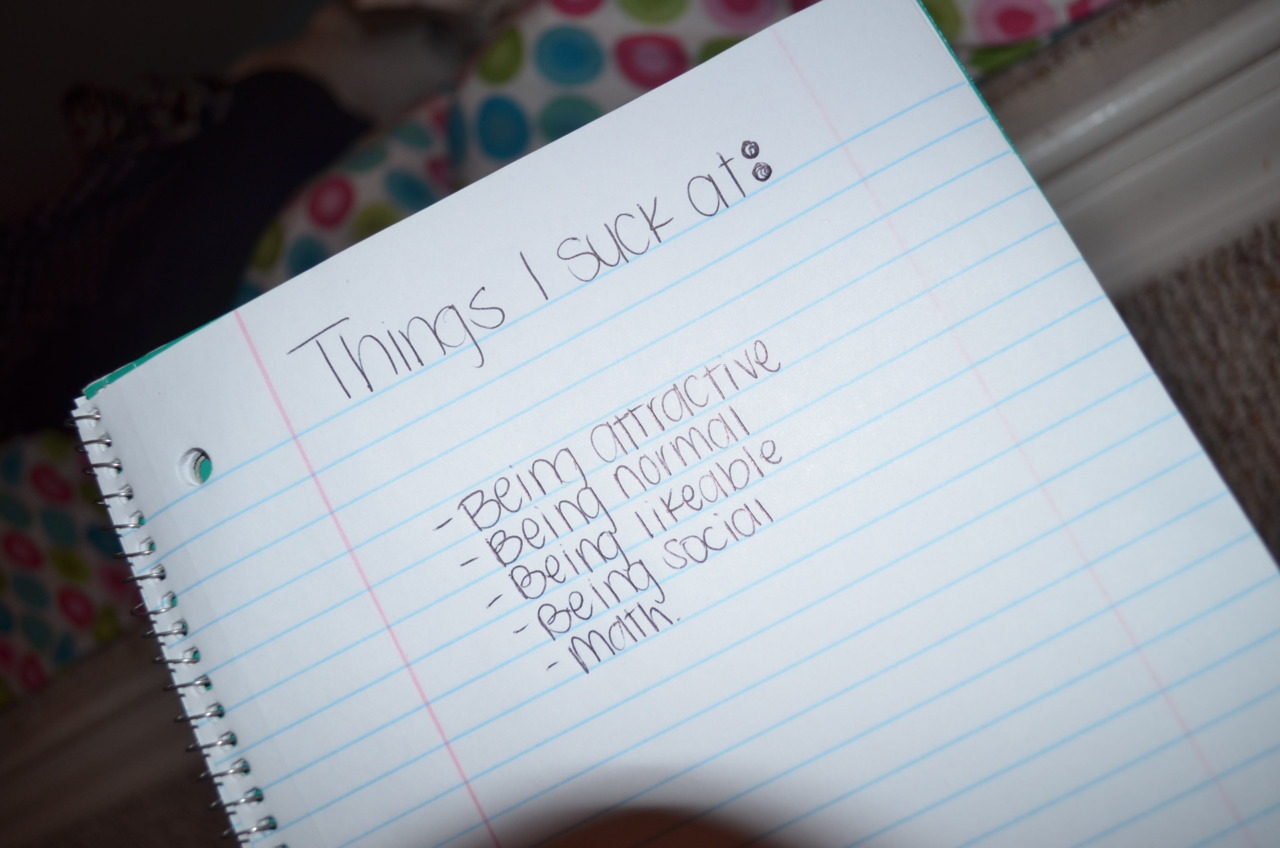 Things I suck at:
- Being attractive
- Being normal
- Being likeable
- Being social
- Math.